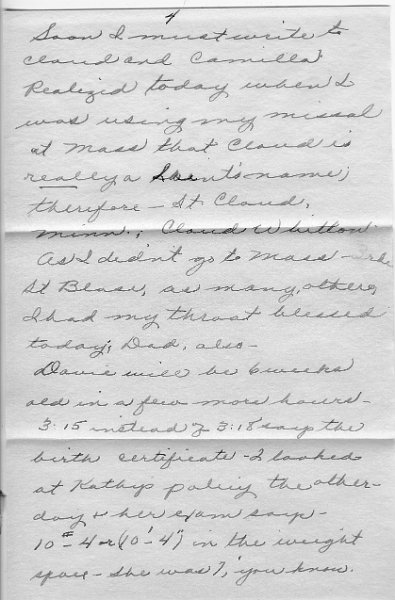 4
Soon I must write to
Cloud and Camilla
Realized today when I
was using my missal
at Mass that Cloud is
really a Saint's name;
therefore - St Cloud,
Minn.; Cloud Whitton
As I didn't go to Mass -
St Blase, as many others,
I had my throat blessed
today; Dad, also -
Davie will be 6 weeks
old in a few more hours -
3:15 instead of 3:18 says the
birth certificate - I looked
at Kathys policy the other
day & her exam says -
10# - 4 or (10' - 4") in the weight
space - she was 7, you know.